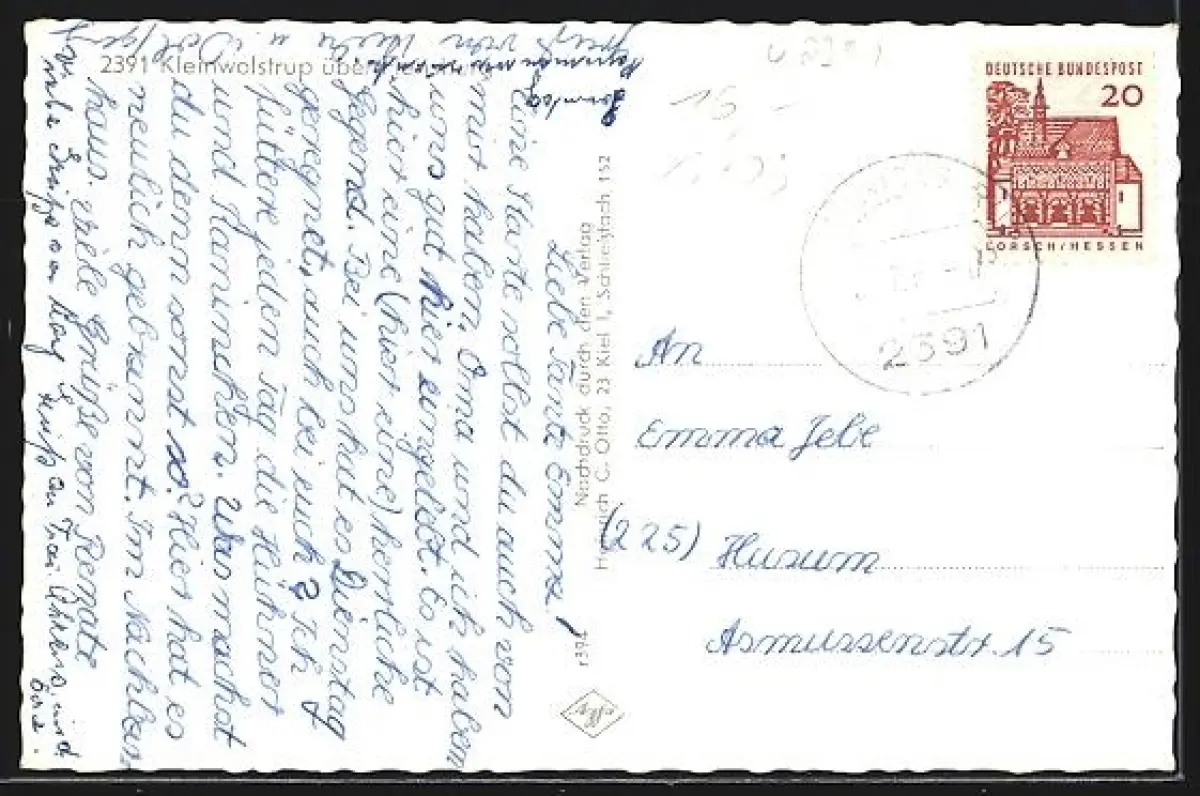 2391 Kleinwolstrup über Flensburg
Liebe Tante Emma!
Eine Karte sollst du auch von
mir haben. Oma und ich haben
uns gut hier eingelebt. Es ist
hier eine (hier eine) herrliche
Gegend. Bei uns hat es Dienstag
geregnet, auch bei euch? Ich
füttere jeden Tag die Hühner
und Kaninchen. Was machst
du denn sonst so? Hier hat es
neulich gebrannt. Im Nachbar
haus. Viele Grüße von Renate
Nachdruck durch den Verlag
Heinrich C. Otto, 23 Kiel 1, Schließfach 152
r394
DEUTSCHE BUNDESPOST
20
LORSCH/HESSEN
2391
An
Emma Jebe
(225) Husum
Asmussenstr. 15